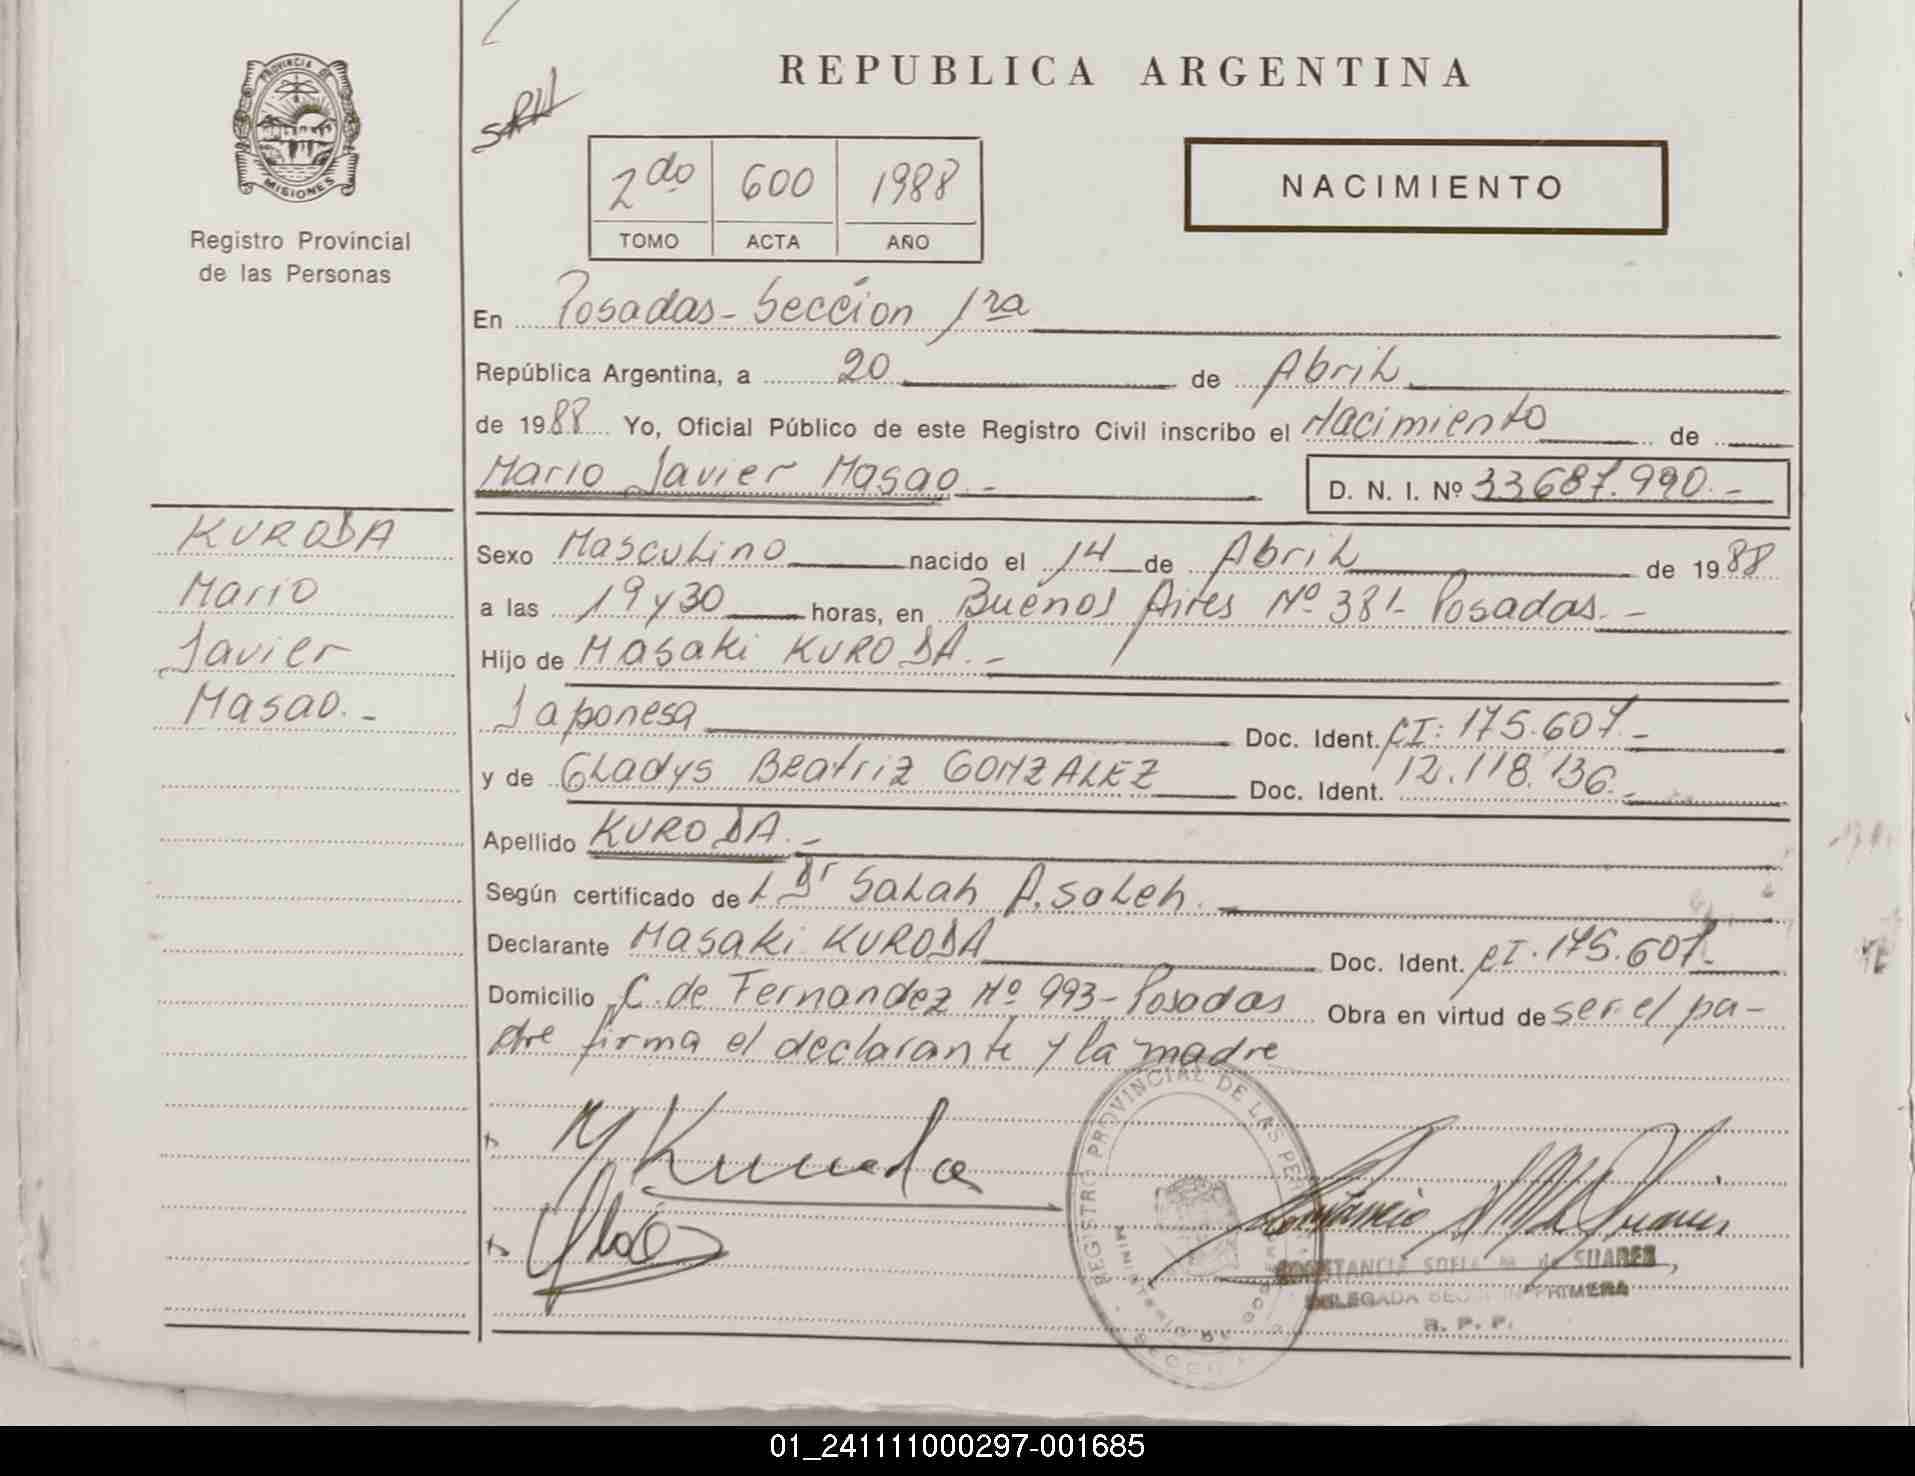 REPUBLICA ARGENTINA
PROVINCIA DE
MISIONES
Registro Provincial
de las Personas
2do 600 1988
TOMO ACTA AÑO
NACIMIENTO
En Posadas - Sección 1ra
República Argentina, a 20 de Abril
de 1988 Yo, Oficial Público de este Registro Civil inscribo el Nacimiento de
Mario Javier Masao.- D. N. I. Nº 33687.990.-
KURODA
Mario
Javier
Masao.-
Sexo Masculino nacido el 14 de Abril de 1988
a las 19 y 30 horas, en Buenos Aires Nº 381- Posadas.-
Hijo de Masaki KURODA.-
Japonesa Doc. Ident. CI: 175.607.-
y de Gladys Beatriz GONZALEZ Doc. Ident. 12.118.136.-
Apellido KURODA.-
Según certificado de L Dr Salah A. Saleh.
Declarante Masaki KURODA Doc. Ident. CI. 175.607.-
Domicilio C. de Fernandez Nº 993- Posadas Obra en virtud de ser el pa-
dre firma el declarante y la madre
M Kuroda
REGISTRO PROVINCIAL DE LAS
MINISTERIO DE
CONSTANCIA SOFIA M. de SUARES
DELEGADA SECCION PRIMERA
R. P. P.
01_241111000297-001685